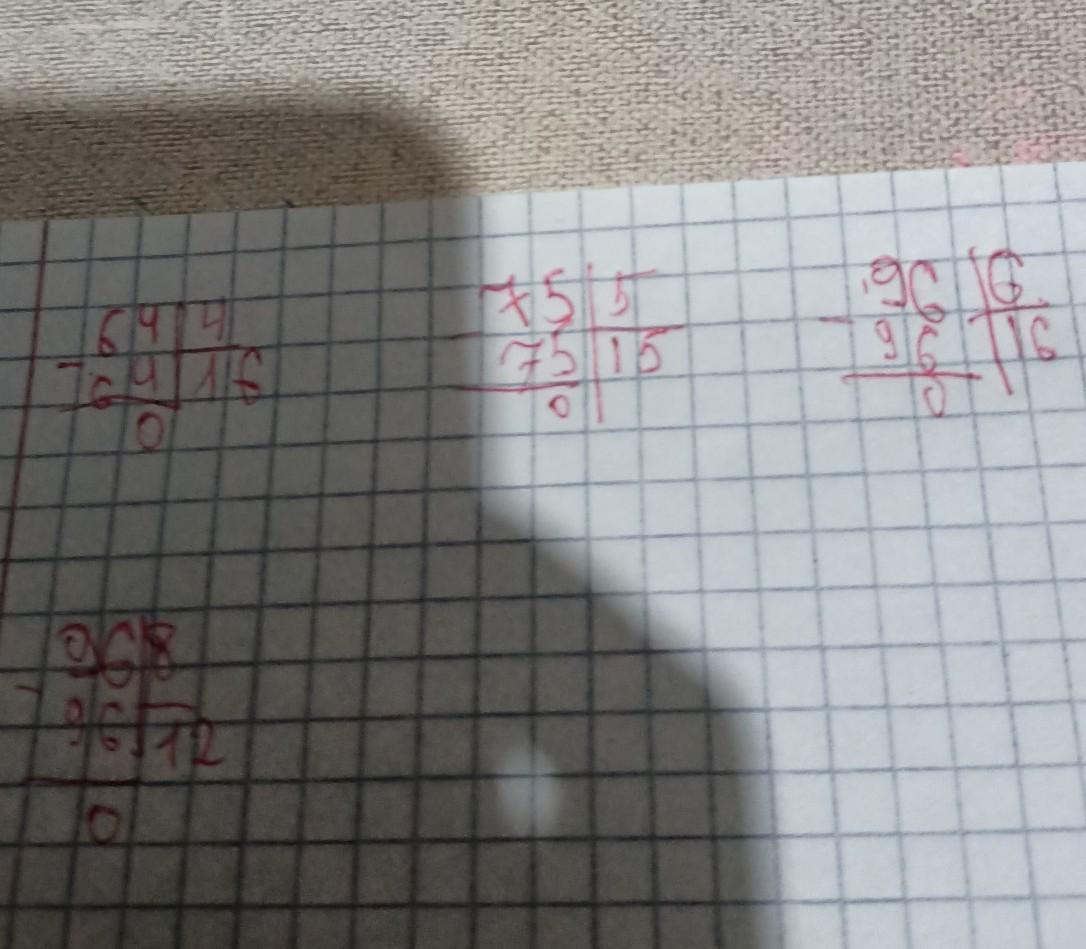 64 4
- 64 16
0
75 5
- 75 15
0
96 6
- 96 16
0
96 8
- 96 12
0